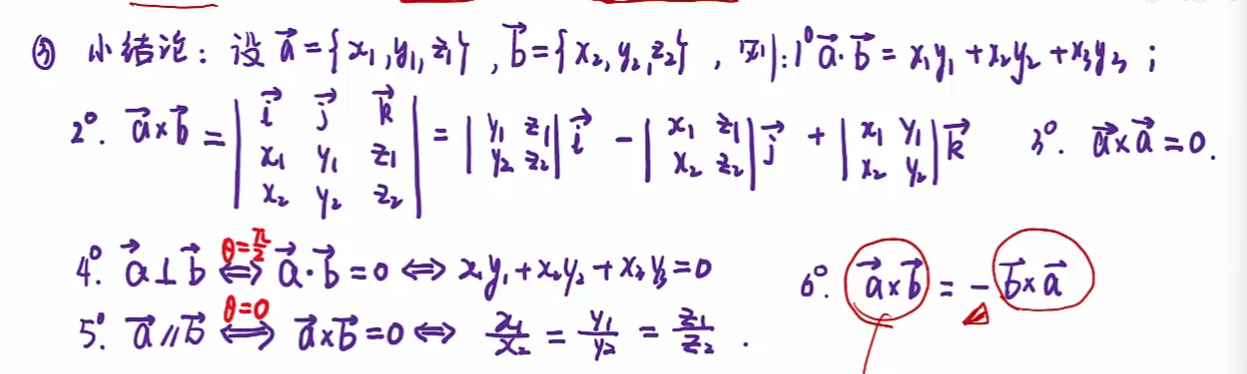 ③ 小结论：设 a⃗={x₁,y₁,z₁}, b⃗={x₂,y₂,z₂}, 则：1° a⃗·b⃗ = x₁y₁+x₂y₂+x₃y₃；
2°. a⃗×b⃗ = |i⃗ j⃗ k⃗; x₁ y₁ z₁; x₂ y₂ z₂| = |y₁ z₁; y₂ z₂| i⃗ - |x₁ z₁; x₂ z₂| j⃗ + |x₁ y₁; x₂ y₂| k⃗ 3°. a⃗×a⃗=0.
4°. a⃗⊥b⃗ ⇔(θ=π/2) a⃗·b⃗=0 ⇔ x₁y₁+x₂y₂+x₃y₃=0 6°. a⃗×b⃗ = -b⃗×a⃗
5°. a⃗∥b⃗ ⇔(θ=0) a⃗×b⃗=0 ⇔ x₁/x₂ = y₁/y₂ = z₁/z₂.